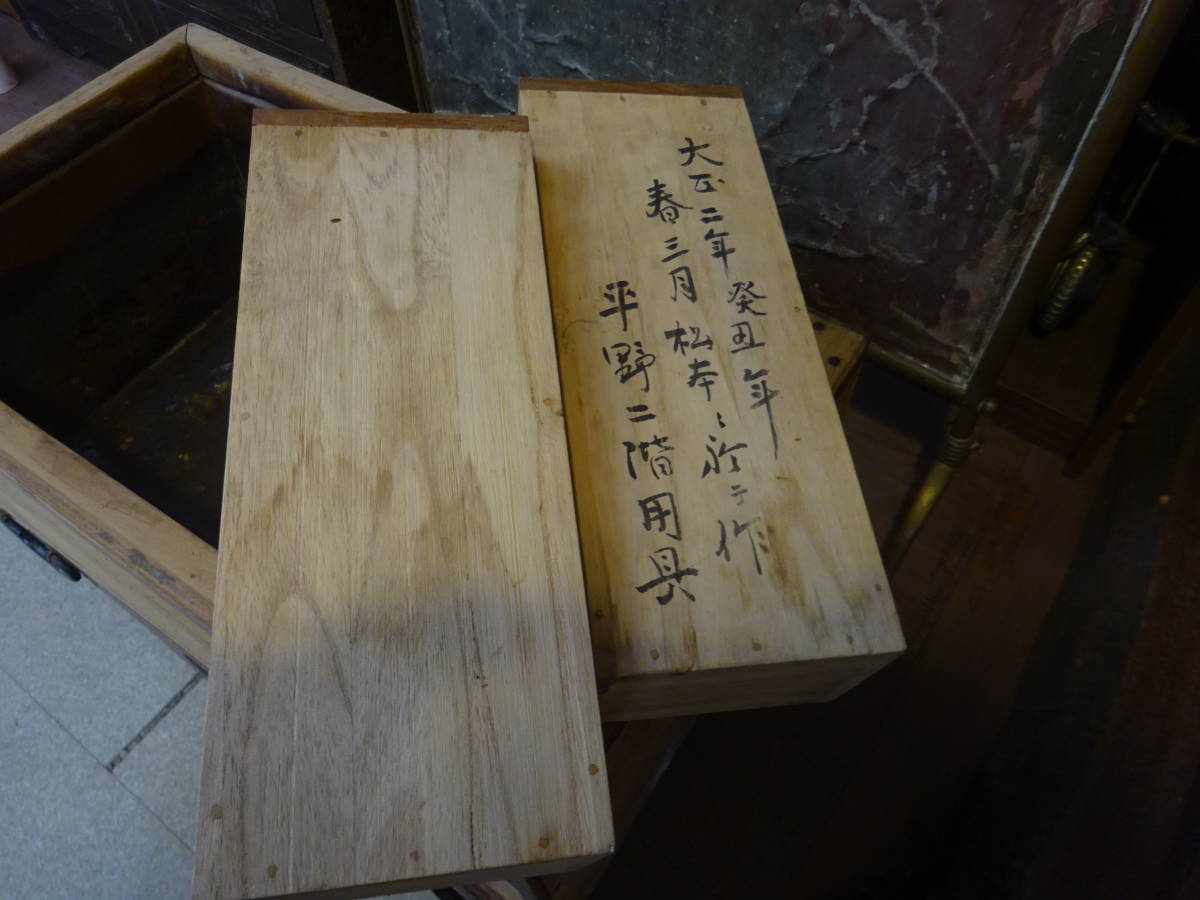 大正二年癸丑年
春三月松本ニ於テ作
平野二階用具